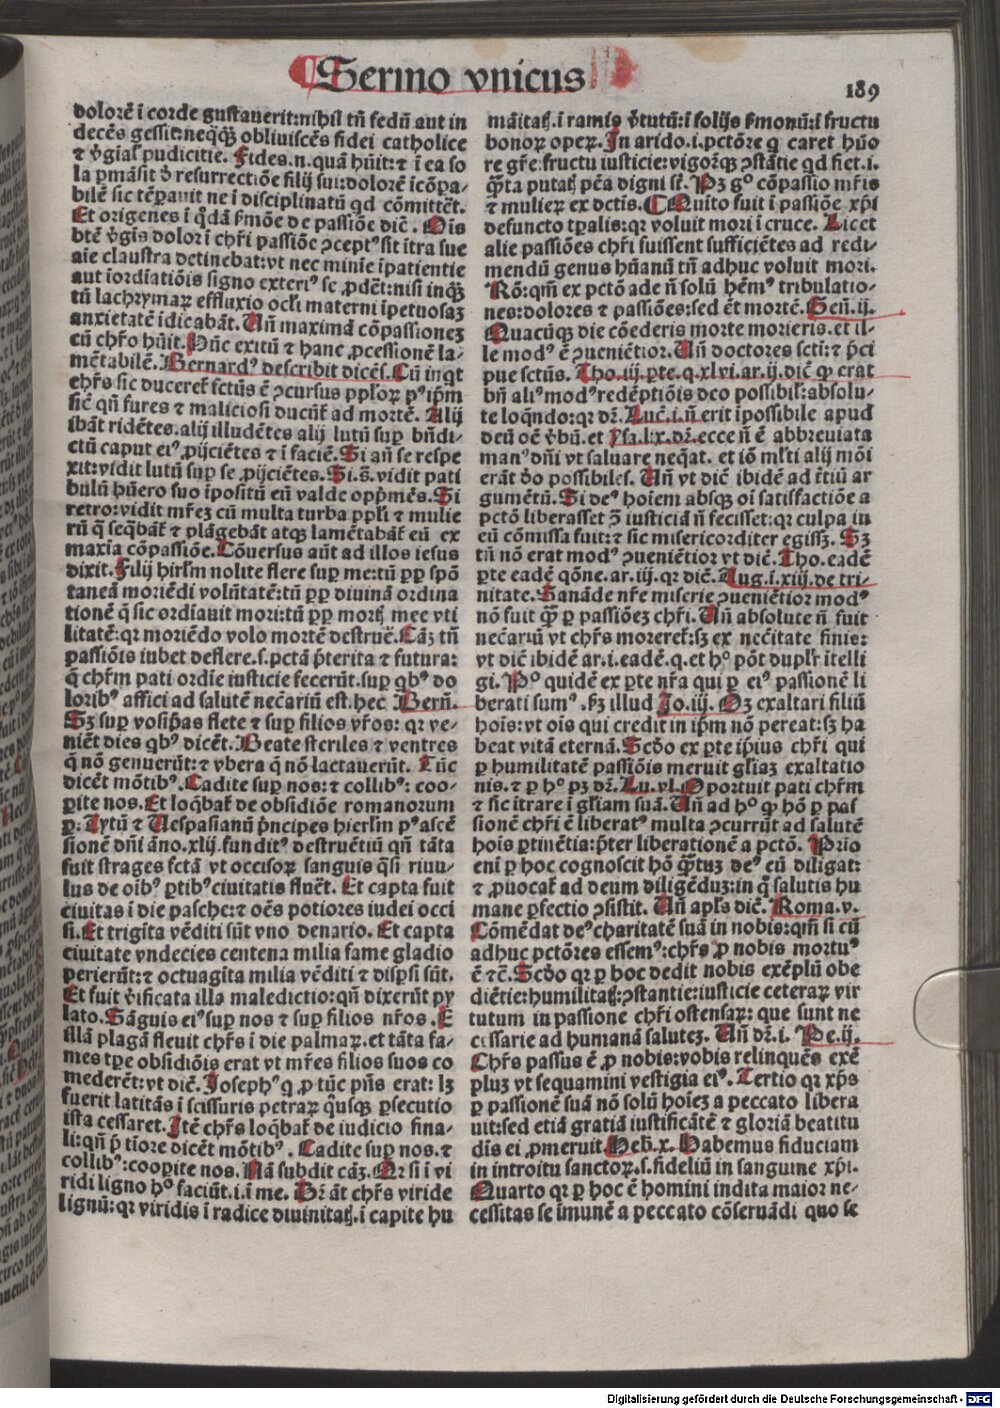 Sermo vnicus
189
dolorē i corde gustauerit: nihil tñ fedū aut in
decēs gessit: neqꝫ obliuiscēs fidei catholice
⁊ v̓gīal' pudicitie. Fides.n. quā hūit: ⁊ i ea so
la ꝑmāsit ō resurrectiōe filij sui: dolorē icōpa-
bilē sic tēꝑauit ne i disciplinatū qd cōmittēt.
Et origenes i q̄dā f̓mōe de passiōe dic̄. Ois
btē v̓gis dolor i chr̄i passiōe ꝯceptꝰ sit itra sue
aīe claustra detinebat: vt nec minie ipatientie
aut iordiatiōis signo exteriꝰ se ꝓdēt: nisi inqꝫ
tū lachrymaꝝ effluxio ocl'i materni ipetuosaꝫ
anxietatē idicabāt. Uñ maximā cōpassionez
cū chr̄o hūit. Hūc exitū ⁊ hanc ꝓcessionē la-
mētabilē. Bernardꝰ describit dicēs. Cū inqt
chr̄s sic duceret̄ fctūs ē ꝯcursus ppl'oꝝ pꝰ ip̄m
sic̄ qñ fures ⁊ maliciosi ducūt̄ ad mortē. Alij
ibāt ridētes. alij illudētes alij lutū suꝑ bñdi-
ctū caput eiꝰ ꝓijciētes ⁊ i faciē. Si añ se respe
xit: vidit lutū suꝑ se ꝓijciētes. Si.ꝭ. vidit pati
bulū hūero suo ipositū eū valde opp̄mēs. Si
retro: vidit mr̄ez cū multa turba ppl'i ⁊ mulie
rū q̄ seqbāt̄ ⁊ plāgebāt atqꝫ lamētabāt̄ eū ex
maxia cōpassiōe. Cōuersus aūt ad illos iesus
dixit. Filij hirl'm nolite flere suꝑ me: tū ꝓp spō
taneā moriēdi volūtatē: tū ꝓp diuinā ordina
tionē q̄ sic ordiauit mori: tū ꝓp mortꝭ mee vti
litatē: qꝛ moriēdo volo mortē destrue᷒. Cāꝫ tñ
passiōis iubet deflere.s. pctā p̄terita ⁊ futura:
q̄ chr̄m pati ordie iusticie fecerūt. suꝑ qbꝰ do
loribꝰ affici ad salutē necāriū est. hec Bern̄.
Sꝫ suꝑ vosip̄as flete ⁊ suꝑ filios vr̄os: qꝛ ve-
niēt dies qbꝰ dicēt. Beate steriles ⁊ ventres
q̄ nō genuerūt: ⁊ vbera q̄ nō lactauerūt. Tūc
dicēt mōtibꝰ. Cadite suꝑ nos: ⁊ collibꝰ: coo-
ꝑite nos. Et loqbat̄ de obsidiōe romanorum
ꝑ: Tytū ⁊ Uespasianū p̄ncipes hierl'm pꝰ ascē
sionē dñi āno. xlij. funditꝰ destruētiū qñ tāta
fuit strages fctā vt occisoꝝ sanguis q̄si riuu-
lus de oibꝰ ꝑtibꝰ ciuitatis fluēt. Et capta fuit
ciuitas i die pasche: ⁊ oēs potiores iudei occi
si. Et trigīta vēditi sūt vno denario. Et capta
ciuitate vndecies centena milia fame gladio
perierūt: ⁊ octuagīta milia vēditi ⁊ disꝑsi sūt.
Et fuit v̓ificata illa maledictio: qñ dixerūt py
lato. Sāguis eiꝰ suꝑ nos ⁊ suꝑ filios nr̄os. E
illā plagā fleuit chr̄s i die palmaꝝ. et tāta fa-
mes tꝑe obsidiōis erat vt mr̄es filios suos co
mederēt: vt dic̄. Josephꝰ q ꝓ tūc pñs erat: lꝫ
fuerit latitās i scissuris petraꝝ qusqꝫ ꝑsecutio
ista cessaret. Itē chr̄s loqbat̄ de iudicio fina-
li: qñ p̄ tiore dicēt mōtibꝰ. Cadite suꝑ nos. ⁊
collibꝰ: cooꝑite nos. Nā subdit cāꝫ. Qꝛ si i vi
ridi ligno hꝰ faciūt. i. i me. Dꝛ āt chr̄s viride
lignū: qꝛ viridis i radice diuinitatꝭ. i capite hu
māitatꝭ. i ramis v̓tutū: i folijs f̓monū: i fructu
bonoꝝ opeꝝ. In arido. i. pctōre q caret hūo
re gr̄e: fructu iusticie: vigorqꝫ ꝯstātie qd fiet. i.
q̄ta putatꝭ pēa digni st̄. Pꝫ gꝰ cōpassio mr̄is
⁊ mulieꝝ ex dctis. ¶ Quito fuit i passiōe xp̄i
defuncto tꝑalis: qꝛ voluit mori i cruce. Licet
alie passiōes chr̄i fuissent sufficiētes ad redi-
mendū genus hūanū tñ adhuc voluit mori.
Rō: qm̄ ex pctō ade ñ solū hēmꝰ tribulatio-
nes: dolores ⁊ passiōes: sed ēt mortē. Geñ. ij.
Quacūqꝫ die cōederis morte morieris. et il-
le modꝰ ē ꝯueniētior. Uñ doctores scti: ⁊ p̄ci
pue sctūs. Tho. iij. ꝑte. q. xlvi. ar. ij. dic̄ ꝙ erat
bñ aliꝰ modꝰ redēptiōis deo possibil': absolu-
te loqndo: qꝛ dꝛ. Luc̄. i. ñ erit ipossibile apud
deū oē v̓bū. et psa. lix. dꝛ. ecce ñ ē abbreuiata
manꝰ dñi vt saluare neqat. et iō ml'ti alij mōi
erāt dō possibiles. Uñ vt dic̄ ibidē ad tertiū ar
gumētū. Si deꝰ hoīem absqꝫ oī satisfactiōe a
pctō liberasset ꝯ̄ iusticiā ñ fecisset: qꝛ culpa in
eū cōmissa fuit: ⁊ sic misericorditer egissꝫ. Sꝫ
tñ nō erat modꝰ ꝯueniētior vt dic̄. Tho. eadē
ꝑte eadē qōne. ar. iij. qꝛ dic̄. Aug. i. xiij. de tri-
nitate. Sanāde nr̄e miserie ꝯueniētior modꝰ
nō fuit q̄ ꝑ passiōez chr̄i. Uñ absolute ñ fuit
necāriū vt chr̄s moreret̄: sꝫ ex nec̄itate finis:
vt dic̄ ibidē ar. i. eadē. q. et hꝰ pōt dupl'r itelli
gi. Pꝰ quidē ex ꝑte nr̄a qui ꝑ eiꝰ passionē li
berati sumꝰ. fꝫ illud Jo. iij. Oꝫ exaltari filiū
hois: vt ois qui credit in ip̄m nō pereat: sꝫ ha
beat vitā eternā. Scdo ex ꝑte ip̄ius chr̄i qui
ꝑ humilitatē passiōis meruit gl'iaꝫ exaltatio
nis. ⁊ ꝑ hꝰ pꝫ dꝛ. Lu. vl. Oportuit pati chr̄m
⁊ sic itrare i gl'iam suā. Uñ ad hꝰ ꝙ hō ꝑ pas
sionē chr̄i ē liberatꝰ multa ꝯcurrūt ad salutē
hois ꝑtinētia: p̄ter liberationē a pctō. Prio
eni ꝑ hoc cognoscit hō q̄tuꝫ deꝰ eū diligat:
⁊ ꝓuocat̄ ad deum diligēduꝫ: in q̄ salutis hu
mane ꝑfectio ꝯsistit. Uñ apl's dic̄. Roma. v.
Cōmēdat deꝰ charitatē suā in nobis: qm̄ si cū
adhuc pctōres essemꝰ: chr̄s ꝓ nobis mortuꝰ
ē ⁊c̄. Scdo qꝛ ꝑ hoc dedit nobis exēplū obe
diētie: humilitatꝭ: ꝯstantie: iusticie ceteraꝝ vir
tutum in passione chr̄i ostensaꝝ: que sunt ne
cessarie ad humanā salutez. Uñ dꝛ. i. Pe. ij.
Chr̄s passus ē ꝓ nobis: vobis relinquēs exē
pluꝫ vt sequamini vestigia eiꝰ. Tertio qꝛ xp̄s
ꝑ passionē suā nō solū hoiez a peccato libera
uit: sed etiā gratiā iustificātē ⁊ gloriā beatitu
dis ei ꝓmeruit Heb̄. x. Habemus fiduciam
in introitu sanctoꝝ. s. fideliū in sanguine xp̄i.
Quarto qꝛ ꝑ hoc ē homini indita maior ne-
cessitas se imunē a peccato cōseruādi quo se
Digitalisierung gefördert durch die Deutsche Forschungsgemeinschaft - DFG